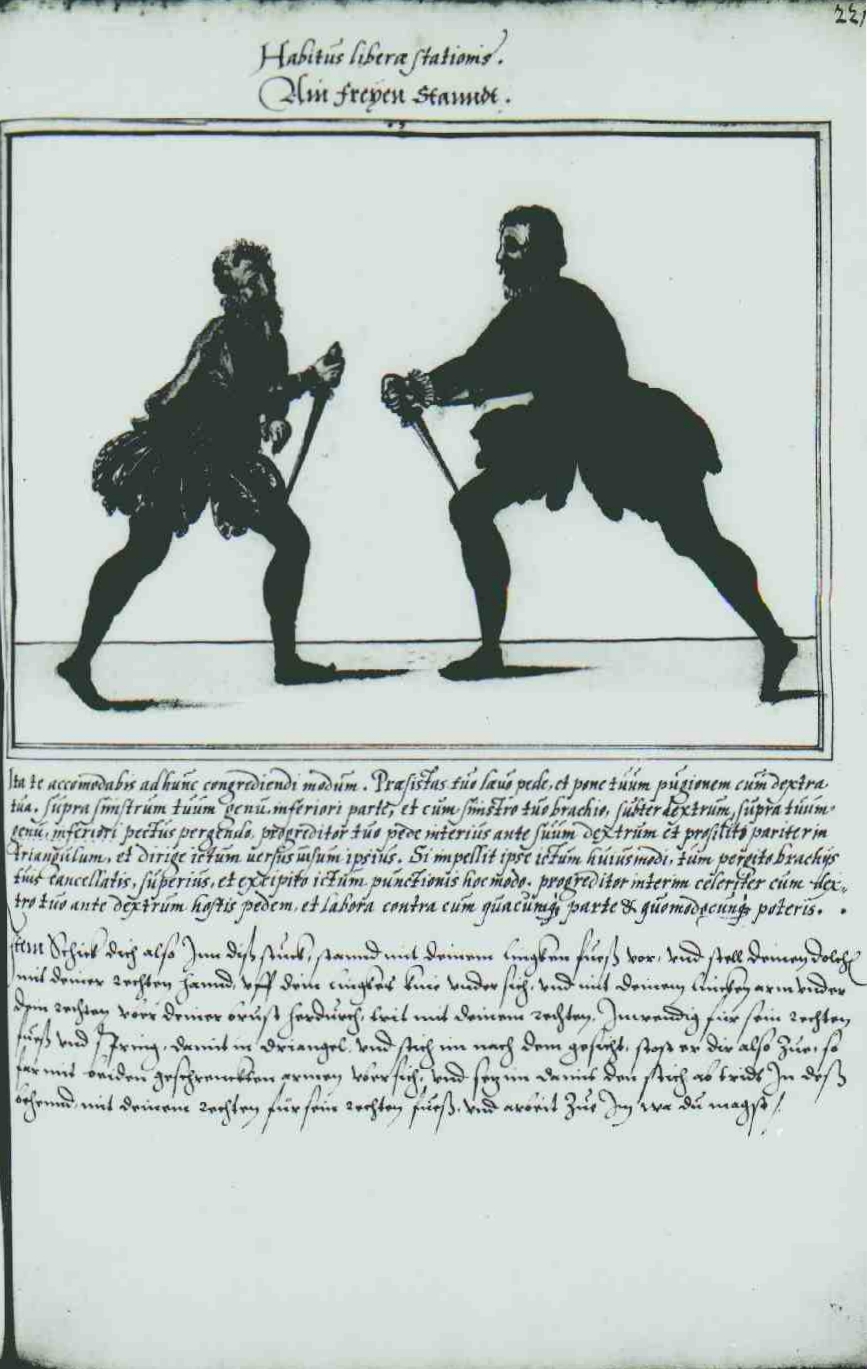 22
Habitus liberæ stationis.
Ain freyen Stanndt.
Ita te accomodabis ad hunc congrediendi modum. Præsistas tuo lævo pede, et pone tuum pugionem cum dextra
tua. supra sinistrum tuum genu, inferiori parte, et cum sinistro tuo brachio, subter dextrum, supra tuum
genu, inferiori pectus pergendo, progreditor tuo pede interius ante suum dextrum et prosilito pariter in
triangulum, et dirige ictum versus uisum ipsius. Si impellit ipse ictum huiusmodi, tum pergito brachijs
tuis cancellatis, superius, et excipito ictum punctionis hoc modo. progreditor interim celeriter cum dex-
tro tuo ante dextrum hostis pedem, et labora contra eum quacunq; parte & quomodocunq; poteris.
Item Schick dich also Inn diß stuck, stannd mit deinem lingken fueß vor, vnd stell deinen dolch
mit deiner rechten hannd, vff dein lingkes knie vndersich, vnd mit deinem lincken arm vnder
dem rechten vber deiner brust herdurch, trit mit deinem rechten, Inwendig für sein rechten
fueß vnd Spring, damit in driangel, vnd stich im nach dem gesicht, stost er dir also Zue, so
far mit beiden geschrenckten armen vbersich, vnd setz im damit den stich ab tridt In deß
behennd, mit deinem rechten für sein rechten fueß, vnd arbeit Zue Im wa du magst